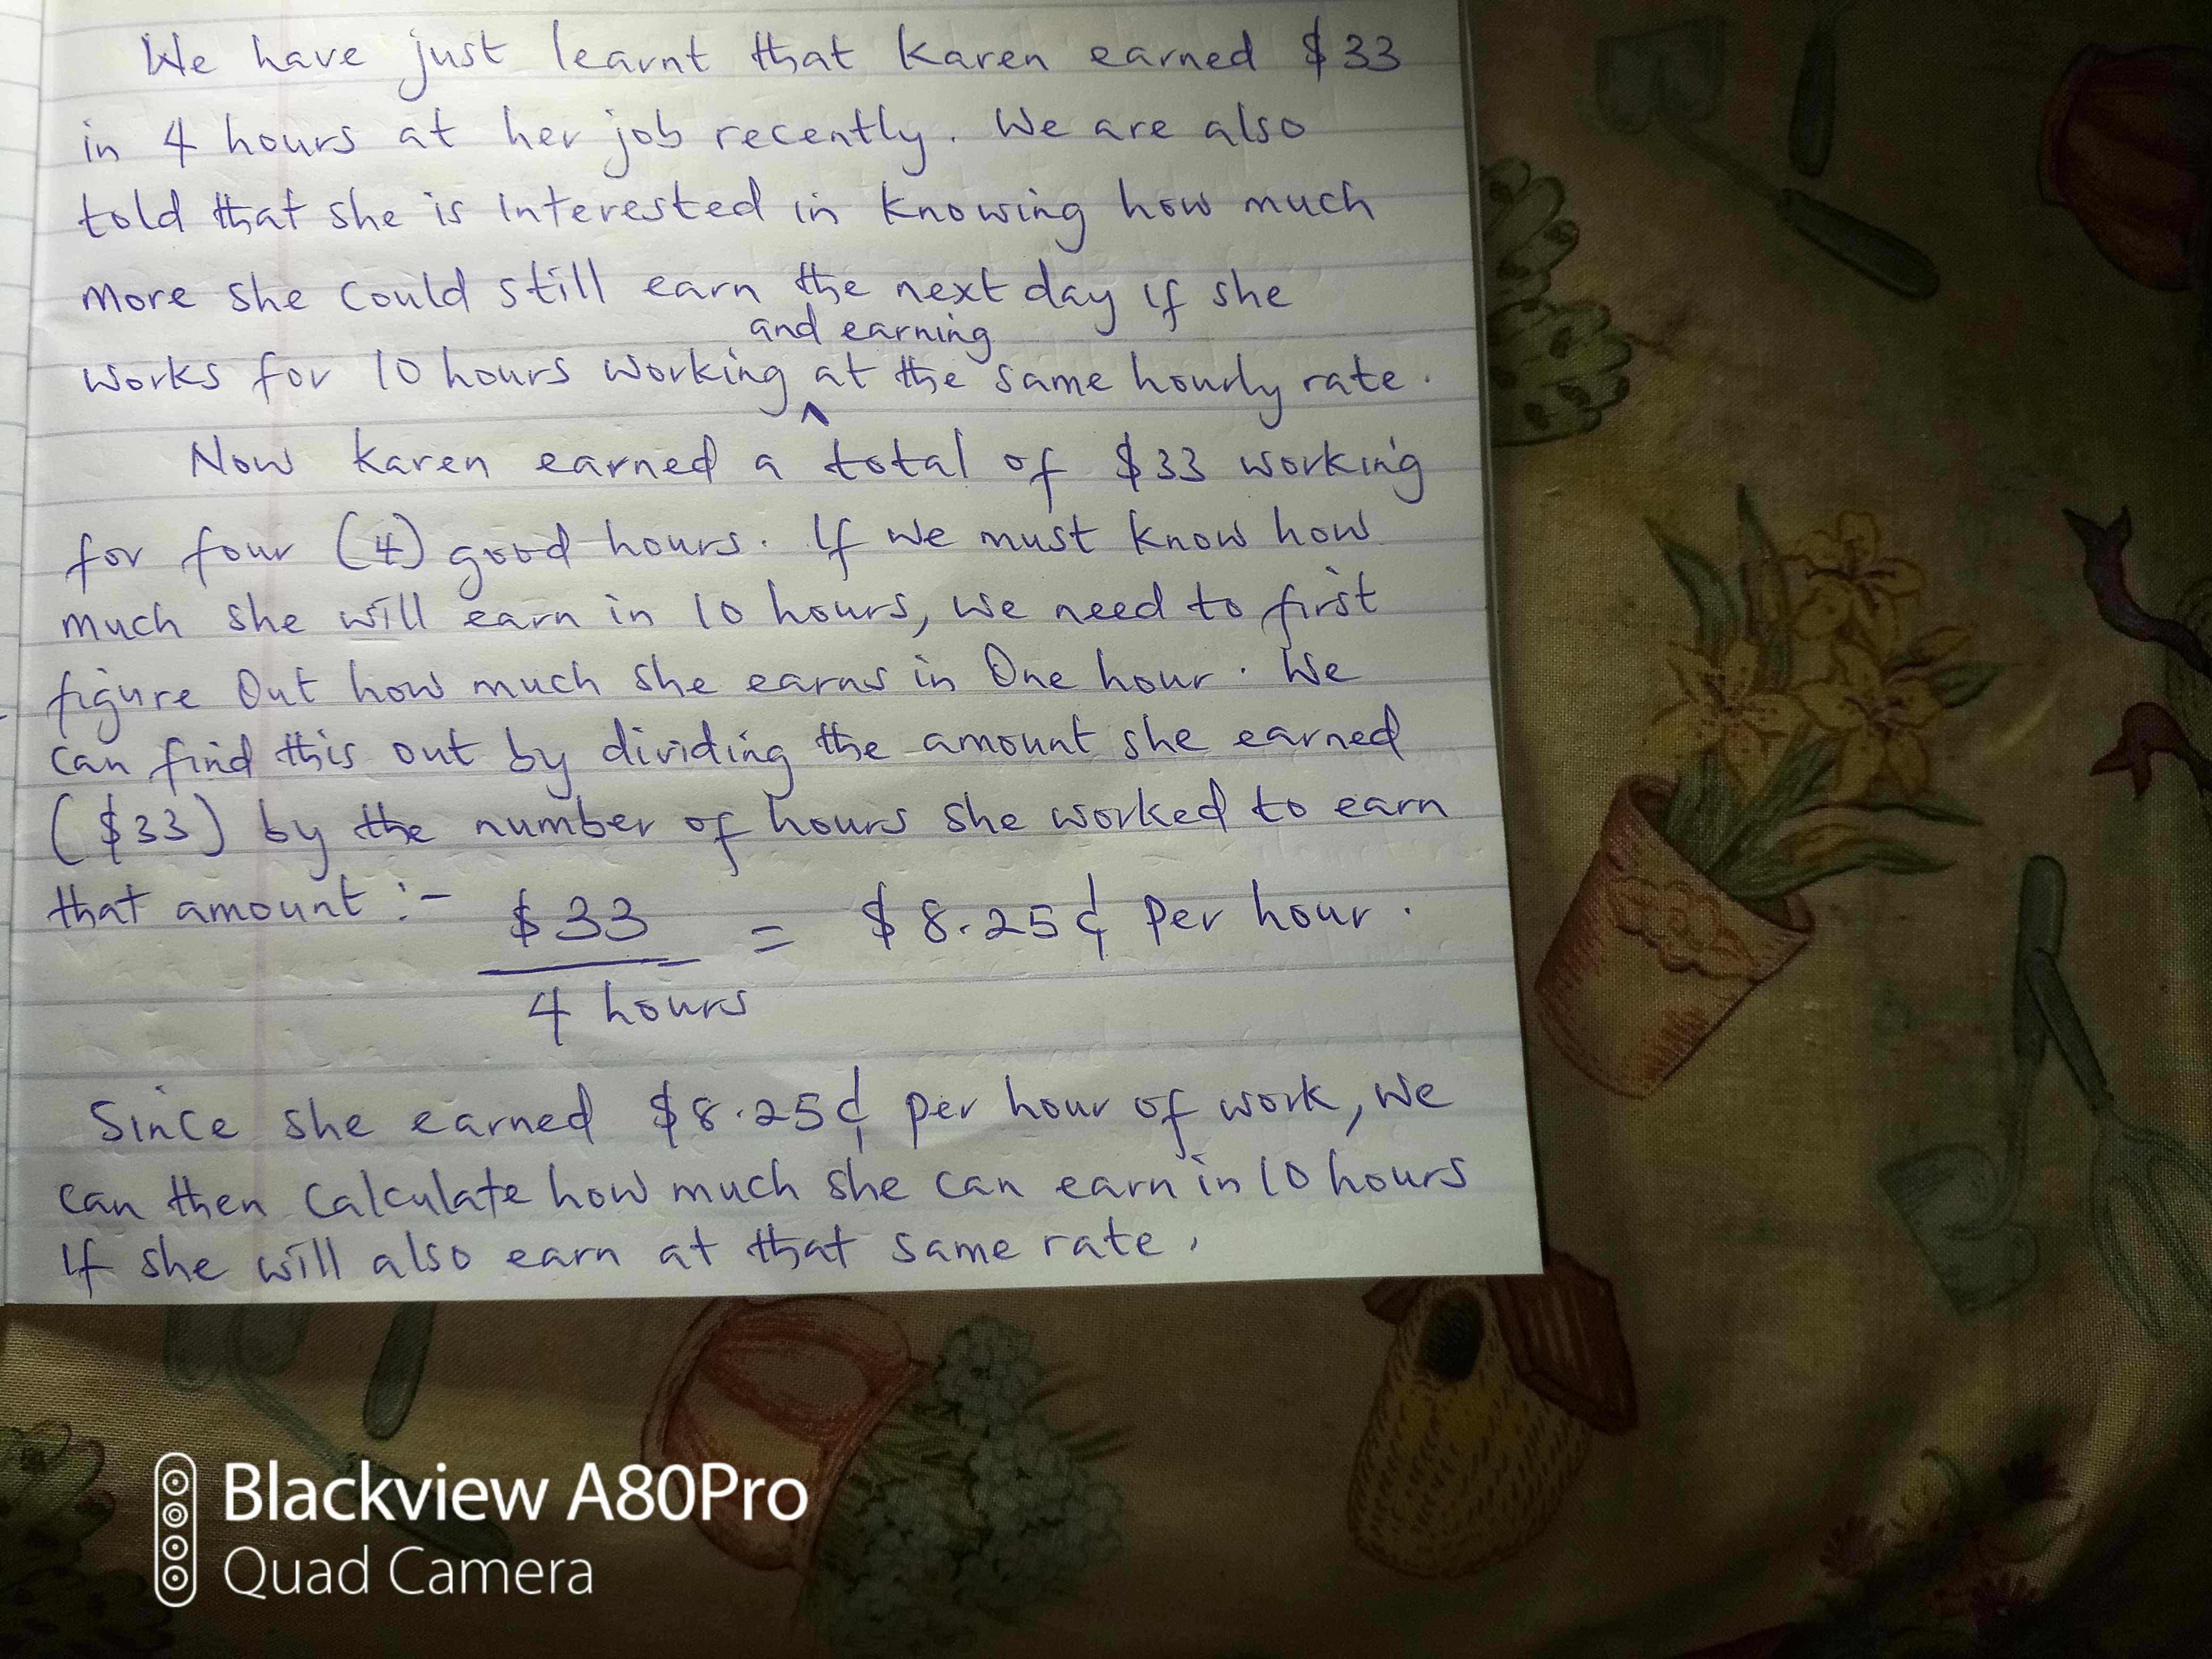 We have just learnt that Karen earned $33
in 4 hours at her job recently. We are also
told that she is interested in knowing how much
more she could still earn the next day if she
and earning
works for 10 hours working ^ at the same hourly rate.
Now Karen earned a total of $33 working
for four (4) good hours. If we must know how
much she will earn in 10 hours, we need to first
figure Out how much she earns in One hour. We
can find this out by dividing the amount she earned
($33) by the number of hours she worked to earn
that amount :- $33 = $8.25¢ per hour.
4 hours
Since she earned $8.25¢ per hour of work, we
can then calculate how much she can earn in 10 hours
If she will also earn at that same rate.
Blackview A80Pro
Quad Camera